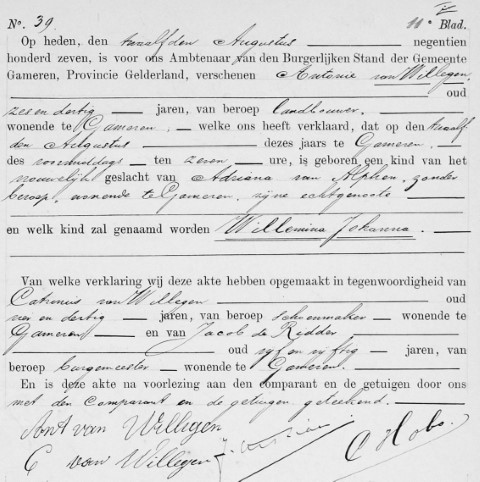 No. 39. 11e Blad.
Op heden, den twaalfden Augustus negentien
honderd zeven, is voor ons Ambtenaar van den Burgerlijken Stand der Gemeente
Gameren, Provincie Gelderland, verschenen Antonie van Willegen,
oud
zes en dertig jaren, van beroep landbouwer,
wonende te Gameren, welke ons heeft verklaard, dat op den twaalf
den Augustus dezes jaars te Gameren,
des voormiddags ten zeven ure, is geboren een kind van het
vrouwelijk geslacht van Adriana van Alphen, zonder
beroep, wonende te Gameren, zijne echtgenoote
en welk kind zal genaamd worden Willemina Johanna.
Van welke verklaring wij deze akte hebben opgemaakt in tegenwoordigheid van
van Willegen oud
vier en dertig jaren, van beroep schoenmaker wonende te
Gameren en van Jacob de Ridder
oud vijf en vijftig jaren, van
beroep burgemeester wonende te Gameren.
En is deze akte na voorlezing aan den comparant en de getuigen door ons
met den comparant en de getuigen geteekend.
Ant van Willigen
C van Willigen